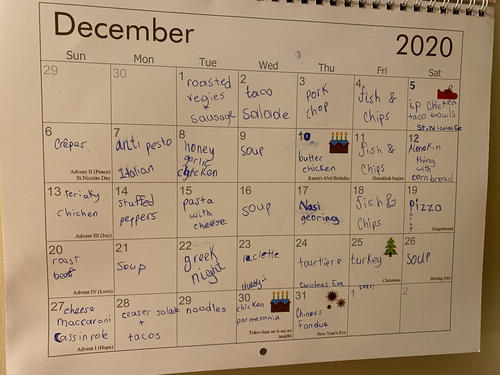 December
2020
Sun Mon Tue Wed Thu Fri Sat
29
30
1 roasted
vegies
sausage
2
taco
salade
3
pork
chop
4
fish &
chips
5
ip chicken
taco bowls
St. Nicolas Eve
6
Crêpes
Advent II (Peace)
St.Nicolas Day
7
anti pesto
Italian
8
honey
garlic
chicken
9
soup
10
butter
chicken
Karen's 43rd Birthday
11
fish &
Chips
Hanukkah begins
12
thing
with
corn bread
13 teriaky
chicken
Advent III (Joy)
14
stuffed
peppers
15
pasta
with
cheese
16
soup
17
Nasi
georing
18
fish &
Chips
19
pizza
Gingerbread
20
roast
beef
Advent IV (Love)
21
soup
22
greek
night
23
raclette
24
tourtière
Christmas Eve
25
turkey
Christmas
26
soup
Boxing Day
27 cheese
maccaroni
cassinrole
Advent I (Hope)
28
ceaser salade
+
tacos
29
noodles
30
chicken
parmesania
31
Chinees
fondue
New Year's Eve
2021
1
2